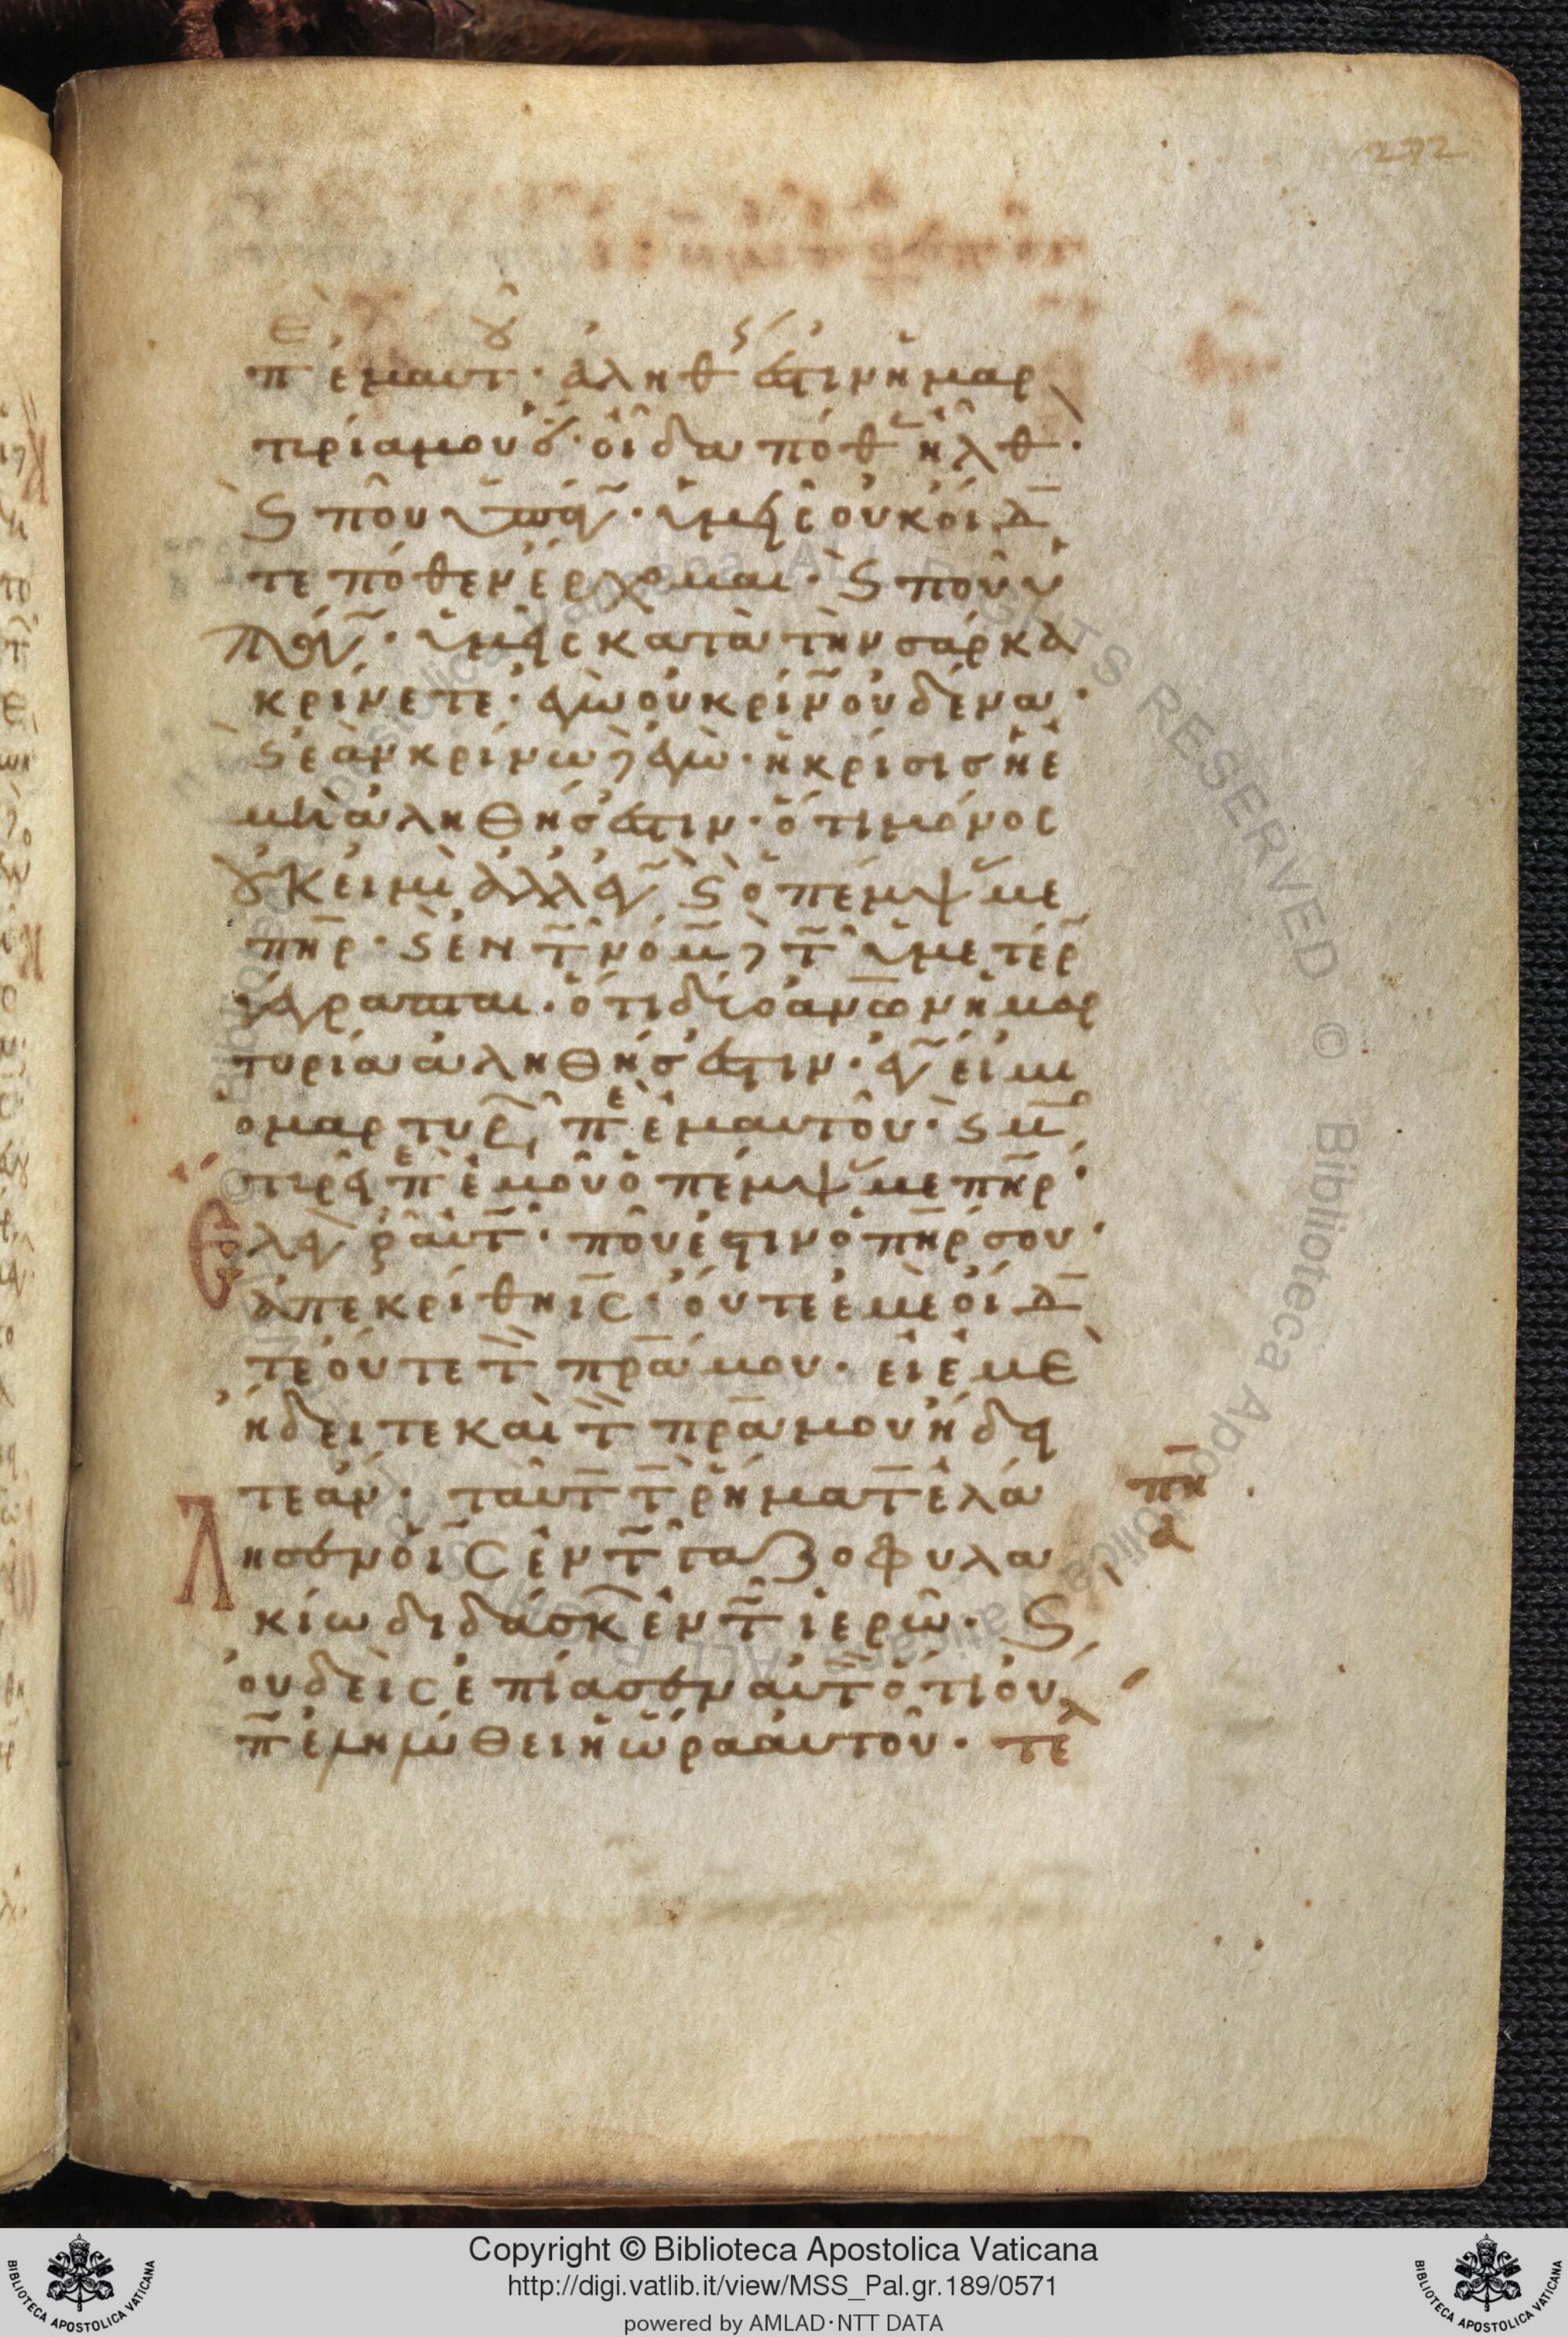 272
πὲ ἐμαυτοῦ· ἀληθής ἐστιν ἡ μαρ
τυρία μου ὅτι οἶδα πόθεν ἦλθον·
καὶ ποῦ ὑπάγω· ὑμεῖς οὐκ οἴδα
τε πόθεν ἔρχομαι· καὶ ποῦ ὑ
πάγω· ὑμεῖς κατὰ τὴν σάρκα
κρίνετε· ἐγὼ οὐ κρίνω οὐδένα·
καὶ ἐὰν κρίνω δὲ ἐγὼ· ἡ κρίσις ἡ ἐ
μὴ ἀληθής ἐστιν· ὅτι μόνος
οὐκ εἰμὶ ἀλλ' ἐγὼ καὶ ὁ πέμψας με
πηρ· καὶ ἐν τῷ νόμῳ δὲ τῷ ὑμετέρῳ
γέγραπται· ὅτι δύο ανων ἡ μαρ
τυρία ἀληθής ἐστιν· ἐγώ εἰμι
ὁ μαρτυρῶν περὶ ἐμαυτοῦ· καὶ μαρ
τυρεῖ περὶ ἐμοῦ ὁ πέμψας με πηρ·
ἔλεγον οὖν αὐτῷ· ποῦ ἐστιν ὁ πηρ σου·
ἀπεκρίθη ις· οὔτε ἐμὲ οἴδα
τε οὔτε τὸν πρα μου· εἰ ἐμὲ
ᾔδειτε καὶ τὸν πρα μου ᾔδει
τε ἄν· ταῦτα τὰ ῥήματα ἐλά
λησεν ὁ ις ἐν τῷ γαζοφυλα
κίω διδάσκων ἐν τῷ ἱερῶ· καὶ
οὐδεὶς ἐπίασεν αὐτὸν ὅτι οὔ
πω ἐληλύθει ἡ ὥρα αὐτοῦ· τελ
πη
α
Copyright © Biblioteca Apostolica Vaticana
http://digi.vatlib.it/view/MSS_Pal.gr.189/0571
powered by AMLAD·NTT DATA
BIBLIOTECA APOSTOLICA VATICANA
BIBLIOTECA APOSTOLICA VATICANA